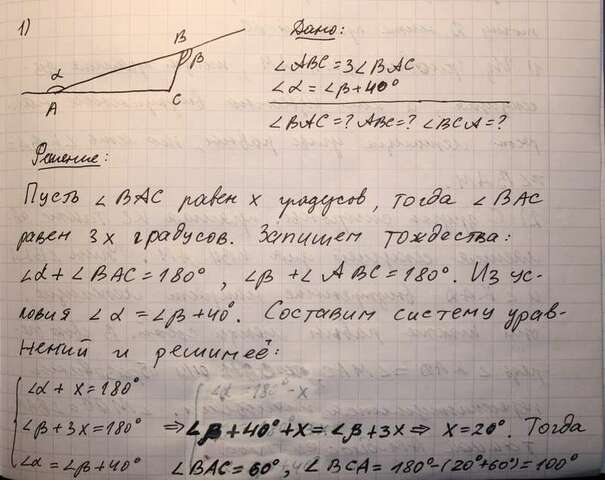 1)
B
α
β
A
C
Дано:
∠ABC=3∠BAC
∠α=∠β+40°
∠BAC=? ABC=? ∠BCA=?
Решение:
Пусть ∠BAC равен x градусов, тогда ∠BAC
равен 3x градусов. Запишем тождества:
∠α+∠BAC=180°, ∠β+∠ABC=180°. Из ус-
ловия ∠α=∠β+40°. Составим систему урав-
нений и решим её:
∠α+x=180°
∠β+3x=180° ⇒∠β+40°+x=∠β+3x⇒ x=20°. Тогда
∠α=∠β+40° ∠BAC=60°, ∠BCA=180°-(20°+60°)=100°